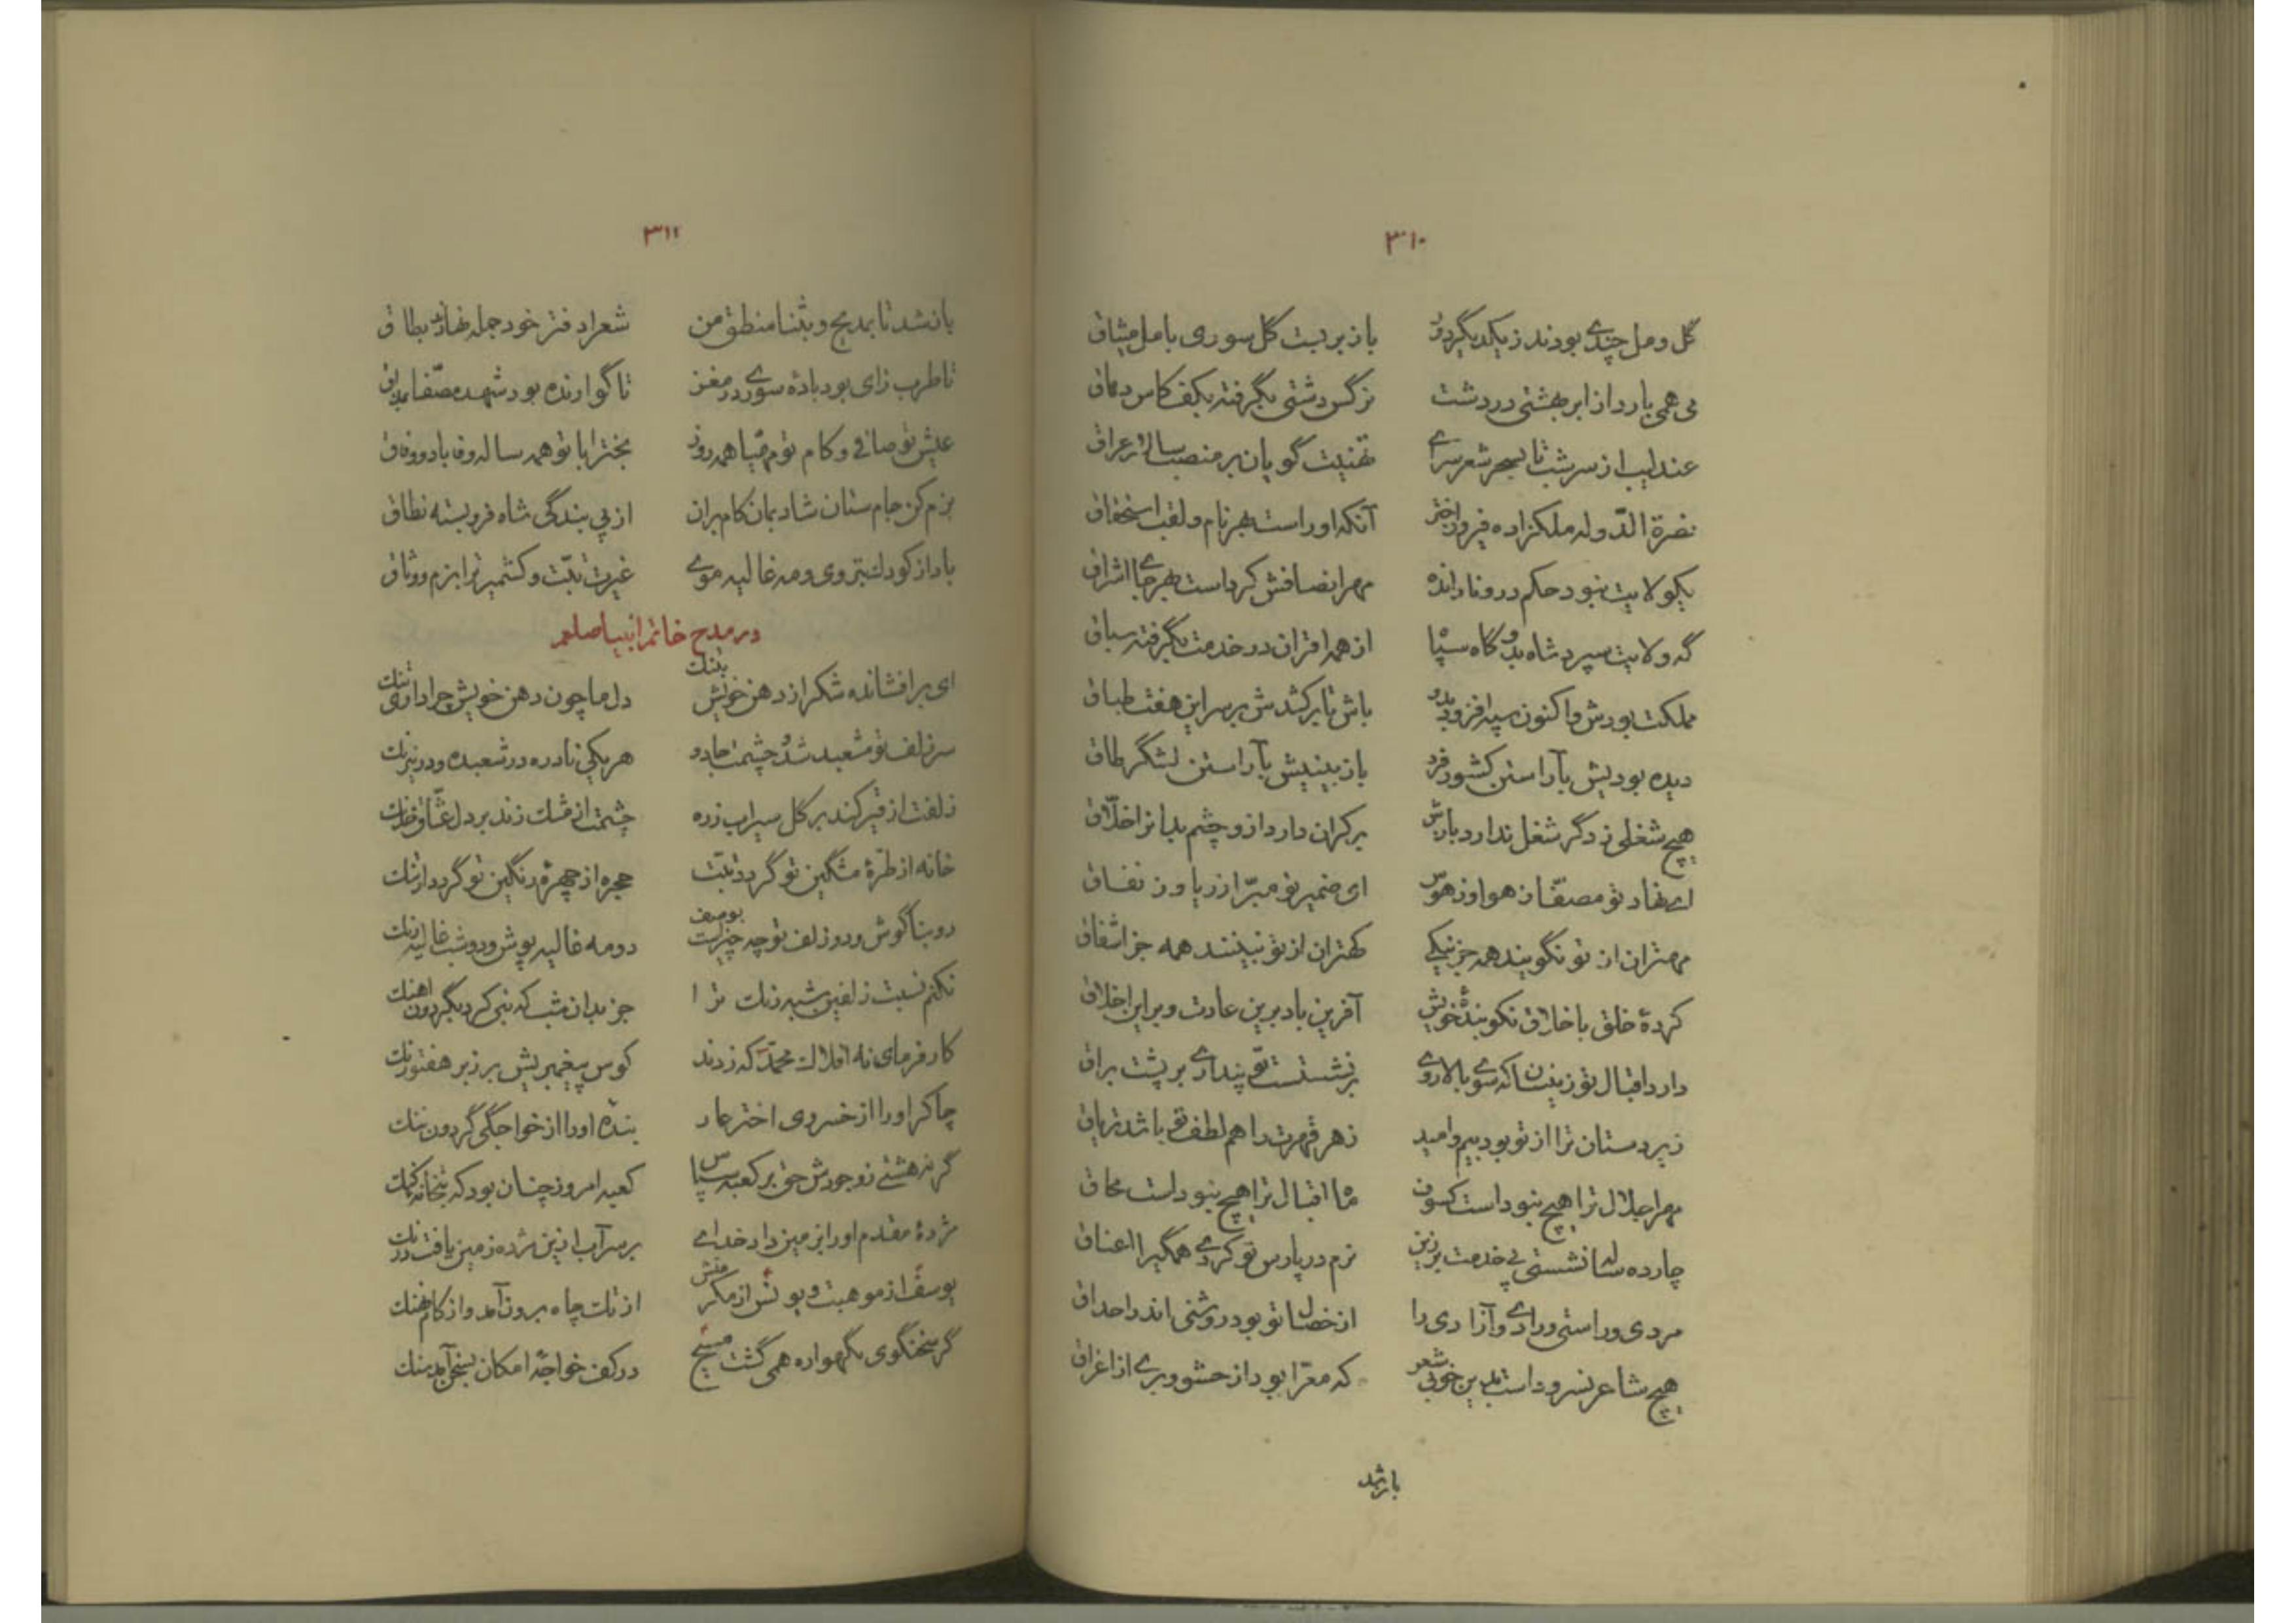 ۳۱۰
گل و مل چندی بودند ز یکدیگر دور باز بربست گل سوری با مل میثاق
می همی بارد از ابر بهشتی در دشت نرگس دشتی بگرفته بکف کاس دهاق
عندلیب از سر شب تا بسحر شعر سرای تهنیت گویان بر منصب سالار عراق
نصرة الدوله ملکزاده فیروز اختر آنکه او راست بهر نام و لقب استحقاق
بیکولایت نبود حکم درو نارانده مهر انصافش کرداست بهر جای اشراق
گه ولایت سپرد شاه بدو گاه سپاه از همه اقران در خدمت بگرفته سباق
مملکت بودش و اکنون سپه افزود بدو باش تا برکشدش بر سر این هفت طباق
دیده بودیش بآراستن کشور فرد باز بینیش بآراستن لشگر طاق
هیچ شغلی ز دگر شغل ندارد بازش برکران دارد ازو چشم بد انر اخلاق
ای نهاد تو مصفّا ز هوا وز هوس ای ضمیر تو مبرّا ز ریا وز نفاق
مهتران از تو نگویند همه جز نیکی کهتران از تو نبینند همه جز اشفاق
کردهٔ خلق با خلاق نکو بندهٔ خویش آفرین باد برین عادت و بر این اخلاق
دارد اقبال تو زینسان که سوی بالا روی برنشستست تو پنداری بر پشت براق
زیردستان ترا از تو بود بیم و امید زهر قهرت را هم لطف تو باشد تریاق
مهر اجلال ترا هیچ نبوداست کسوف ماه اقبال ترا هیچ نبوداست محاق
چارده سال نشستی پی خدمت بر زین نرم در پارس تو کردی همگی را اعناق
مردی و راستی و رادی و آزادی را از خصال تو بود روشنی اندر احداق
هیچ شاعر نسروداست بدین خوبی شعر که معرّا بود از حشو و بری از اغراق
باز شد
۳۱۱
باز شد تا بمدیح و بثنا منطق من شعرا دفتر خود جمله نهادند بطاق
تا طرب زای بود بادهٔ سوری در مغز تا گوارنده بود شهد مصفّا بمذاق
عیش تو صافی و کام تو مهیّا همه روز بخت را با تو همه ساله وفا باد و وفاق
بزم کن جام ستان شاد بمان کام بران از پی بندگی شاه فرو بسته نطاق
باد از کودک بتروی و مه غالیه موی غیرت تبّت و کشمیر ترا بزم و وثاق
در مدح خاتم انبیا صلعم
ای برافشانده شکر از دهن خویش بتنک دل ما چون دهن خویش چرا داری تنک
سر زلف تو مشعبد شد و چشمت جادو هر یکی نادره در شعبده و در نیرنک
زلفت از قیر کند بر گل سیراب زره چشمت از مشک زند بر دل عشّاق خدنک
خانه از طرّهٔ مشگین تو گردد تبّت حجره از چهرهٔ رنگین تو گردد ارتنک
دو بناگوش و دو زلف تو چه چیزاست بوصف دو مه غالیه پوش و دو شب غالیه رنک
نکنم نسبت زلفین شبه رنک ترا جز بدان شب که نبی کرد بگردون آهنک
کارفرمای نه افلاک محمّد که زدند کوس پیغمبریش بر زبر هفتورنک
چاکر او را از خسروی اختر عار بنده او را از خواجگی گردون ننک
گر نه هشتی ز وجودش حق بر کعبه سپاس کعبه امروز چنان بود که بتخانهٔ کنک
مژدهٔ مقدم او را بزمین داد خدای بر سر آب ازین مژده زمین یافت درنک
یوسف از موهبت و یونس از مکرمتش از تک چاه برون آمد و از کام نهنک
گر سخنگوی بگهواره همی گشت مسیح در کف خواجهٔ امکان بسخن آمد سنک